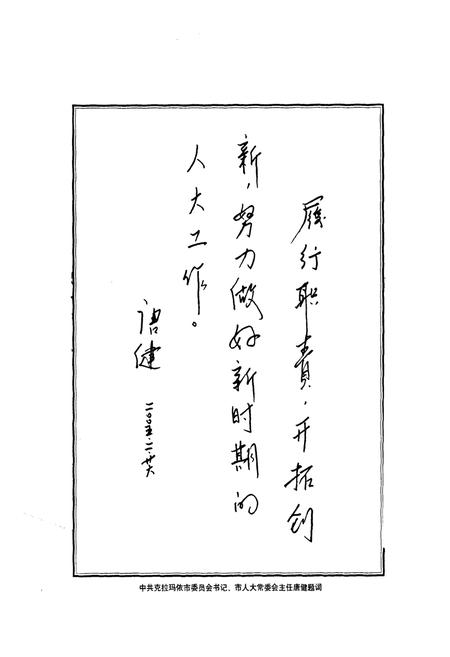 履行职责，开拓创
新，努力做好新时期的
人大工作。
唐健
二〇〇五.二.廿六
中共克拉玛依市委员会书记、市人大常委会主任唐健题词